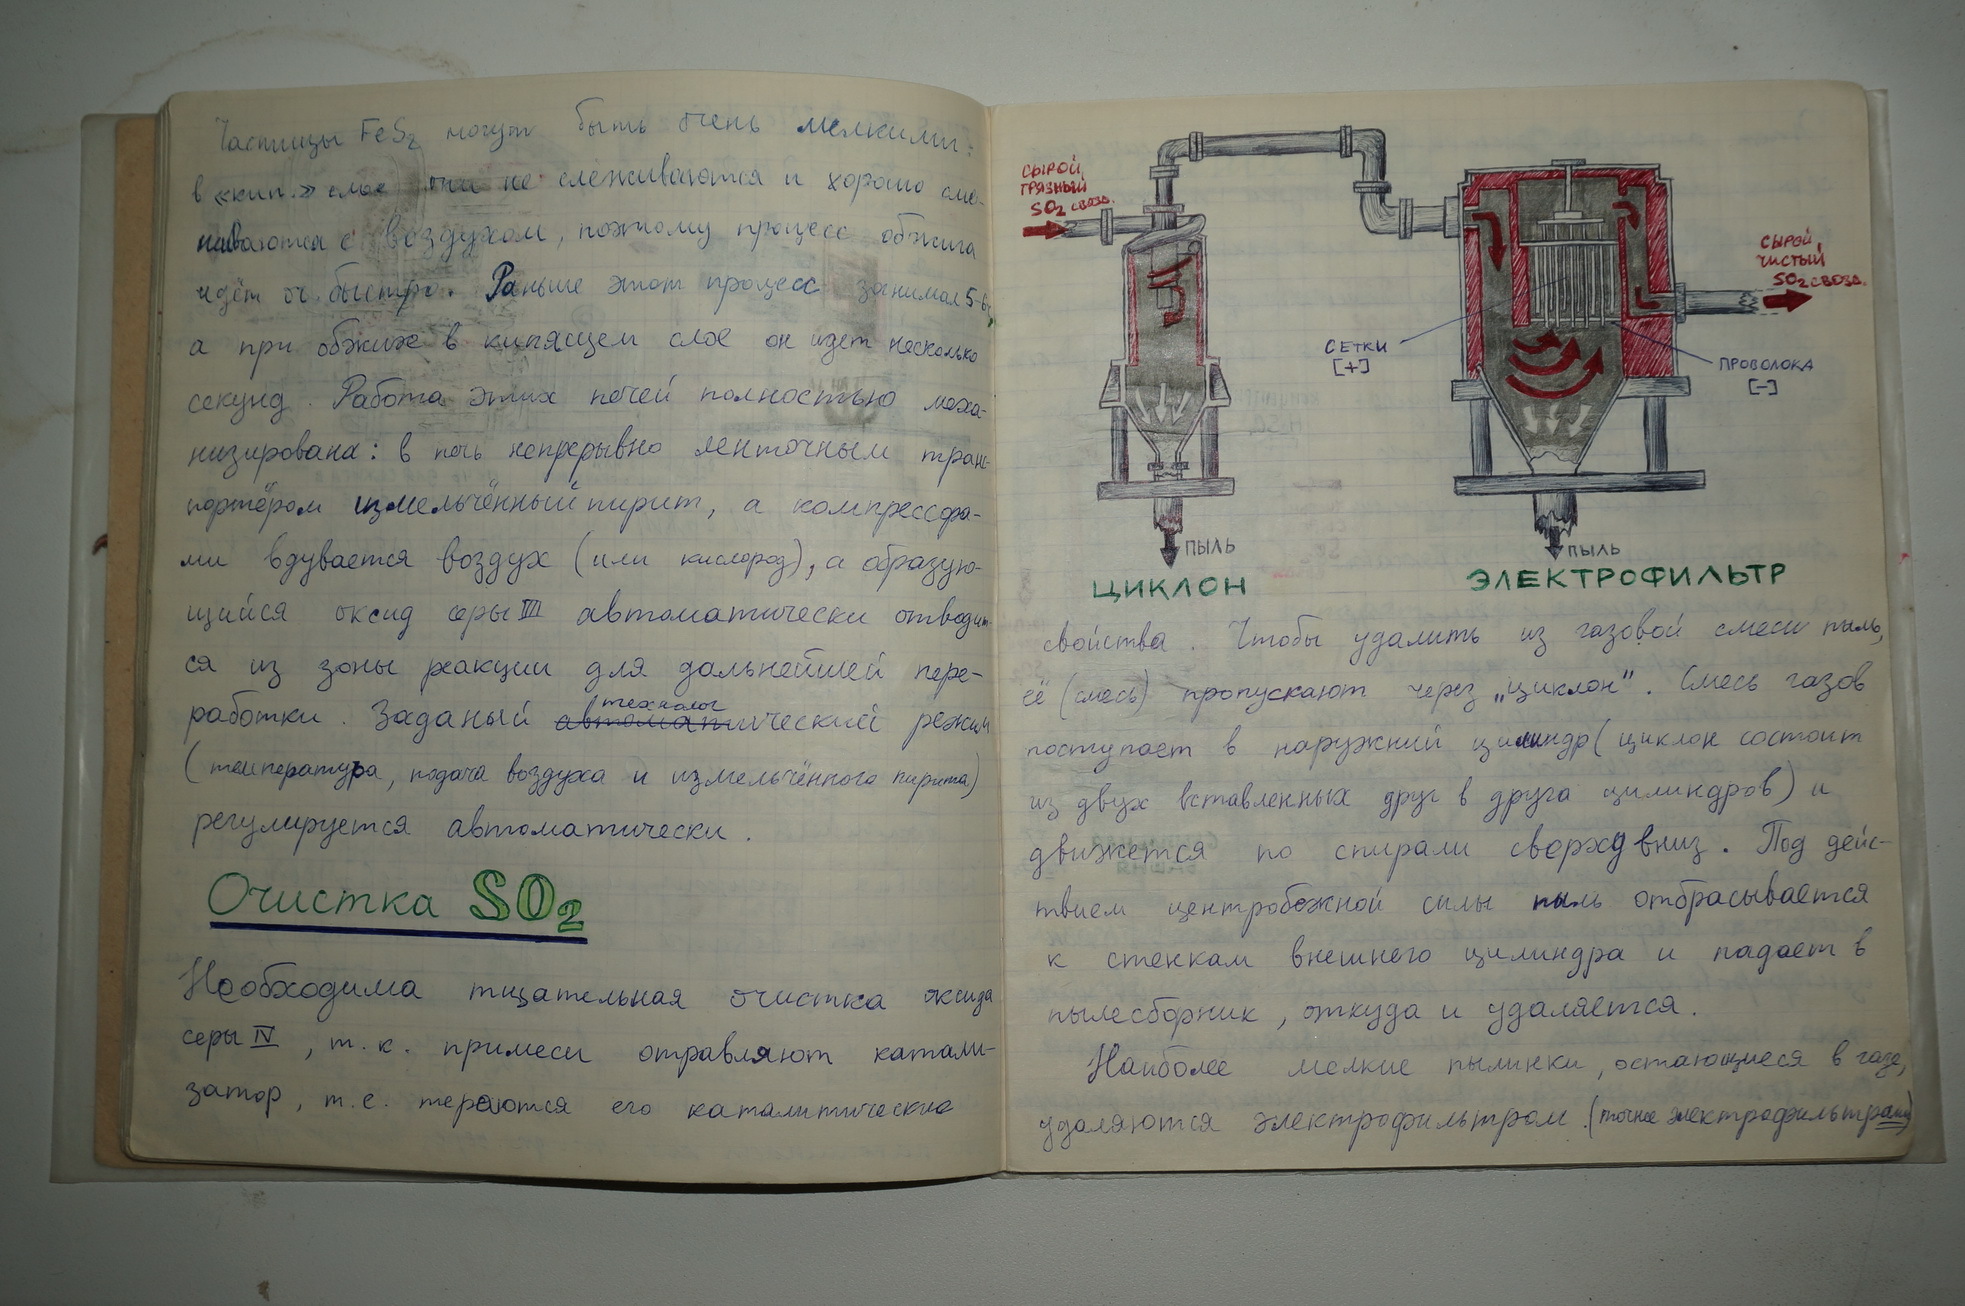 Частицы FeS₂ могут быть очень мелкими:
в «кип.» слое они не слёживаются и хорошо сме-
шиваются с воздухом, поэтому процесс обжига
идёт оч. быстро. Раньше этот процесс занимал 5-6ч,
а при обжиге в кипящем слое он идет несколько
секунд. Работа этих печей полностью меха-
низирована: в печь непрерывно ленточным транс-
портёром измельчённый пирит, а компрессора-
ми вдувается воздух (или кислород), а образую-
щийся оксид серы
автоматически отводит-
ся из зоны реакции для дальнейшей пере-
работки. Заданый автоматический режим
технолог
(температура, подача воздуха и измельчённого пирита)
регулируется автоматически.
Очистка SO₂
Необходима тщательная очистка оксида
серы IV, т.к. примеси отравляют катали-
затор, т.е. теряются его каталитические
СЫРОЙ,
ГРЯЗНЫЙ
SO₂ СВОЗД.
СЫРОЙ,
ЧИСТЫЙ
SO₂ СВОЗД.
СЕТКИ
[+]
ПРОВОЛОКА
[−]
ПЫЛЬ
ПЫЛЬ
ЦИКЛОН
ЭЛЕКТРОФИЛЬТР
свойства. Чтобы удалить из газовой смеси пыль,
её (смесь) пропускают через „циклон". Смесь газов
поступает в наружний цилиндр (циклон состоит
из двух вставленных друг в друга цилиндров) и
движется по спирали сверху вниз. Под дейс-
твием центробежной силы пыль отбрасывается
к стенкам внешнего цилиндра и падает в
пылесборник, откуда и удаляется.
Наиболее мелкие пылинки, остающиеся в газе,
удаляются электрофильтром. (точнее электрофильтрами)